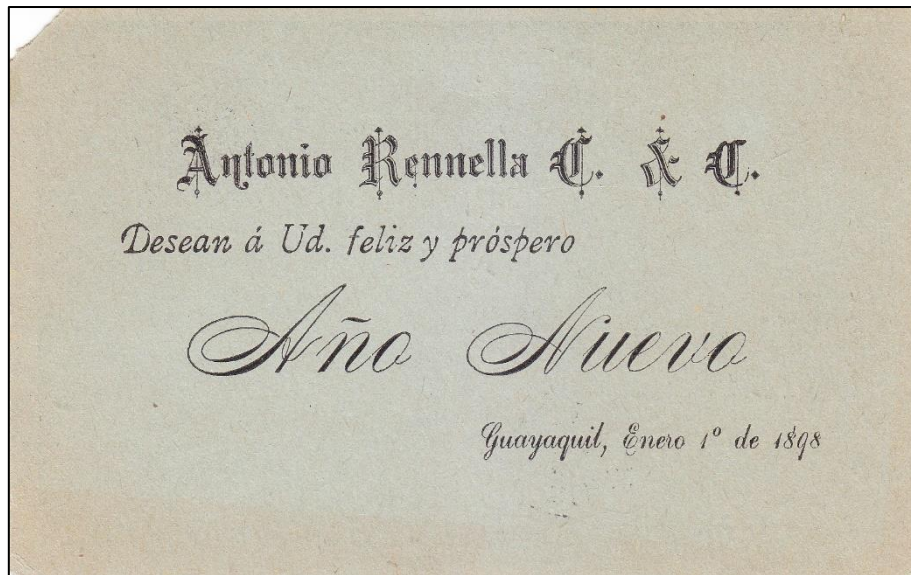 Antonio Rennella C. & C.
Desean á Ud. feliz y próspero
Año Nuevo
Guayaquil, Enero 1º de 1898